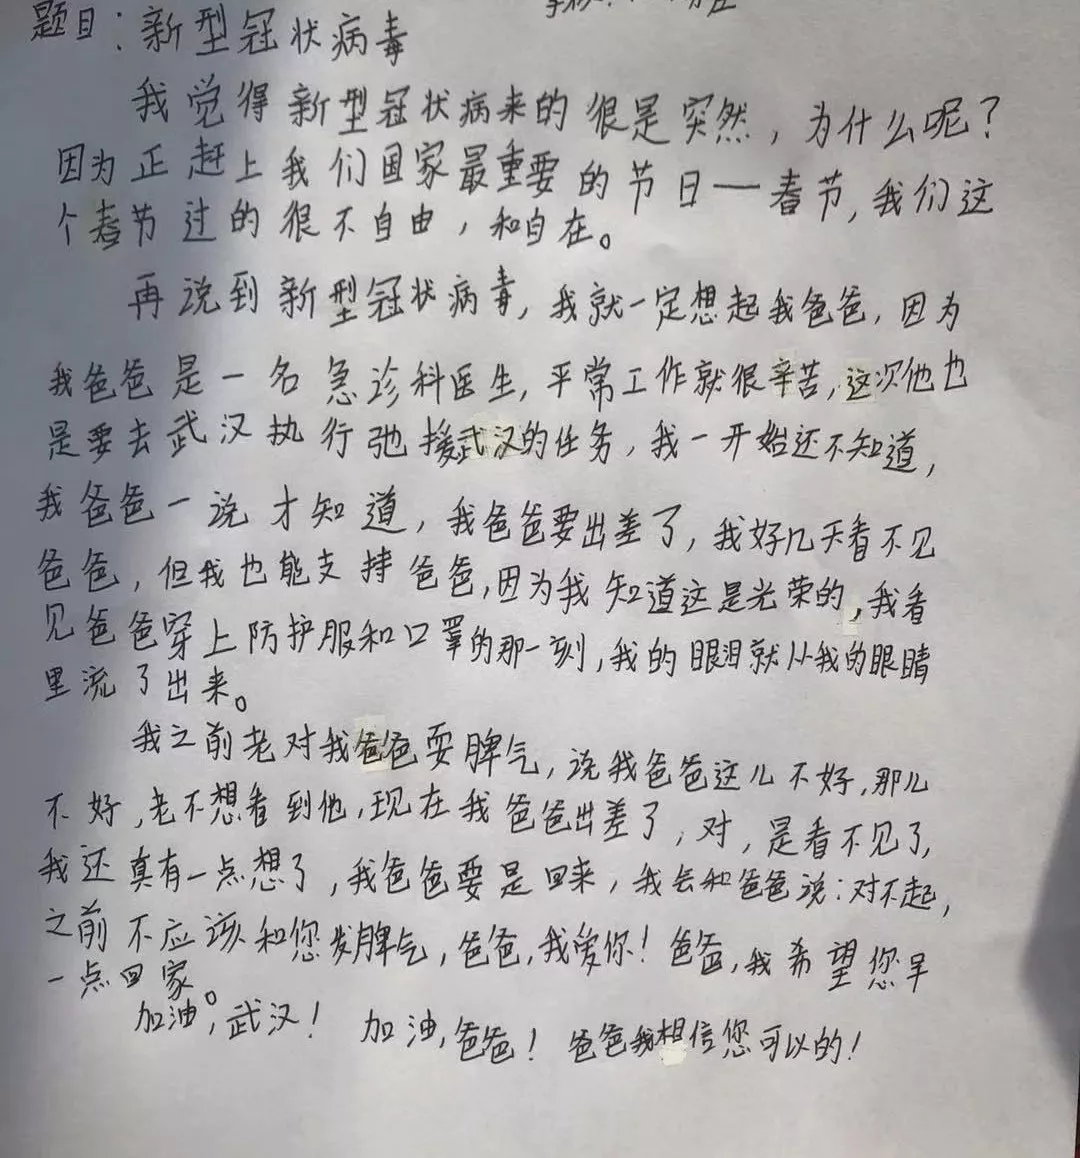 题目：新型冠状病毒
我觉得新型冠状病来的很是突然，为什么呢？
因为正赶上我们国家最重要的节日一春节，我们这
个春节过的很不自由，和自在。
再说到新型冠状病毒，我就一定想起我爸爸，因为
我爸爸是一名急诊科医生，平常工作就很辛苦，这次他也
是要去武汉执行弛援武汉的任务，我一开始还不知道，
我爸爸一说才知道，我爸爸要出差了，我好几天看不见
爸爸，但我也能支持爸爸，因为我知道这是光荣的，我看
见爸爸穿上防护服和口罩的那一刻，我的眼泪就从我的眼睛
里流了出来。
我之前老对我爸爸耍脾气，说我爸爸这儿不好，那儿
不好，老不想看到他，现在我爸爸出差了，对，是看不见了，
我还真有一点想了，我爸爸要是回来，我会和爸爸说：对不起，
之前不应该和您发脾气，爸爸，我爱你！爸爸，我希望您早
一点回家。
加油，武汉！加油，爸爸！爸爸我相信您可以的！